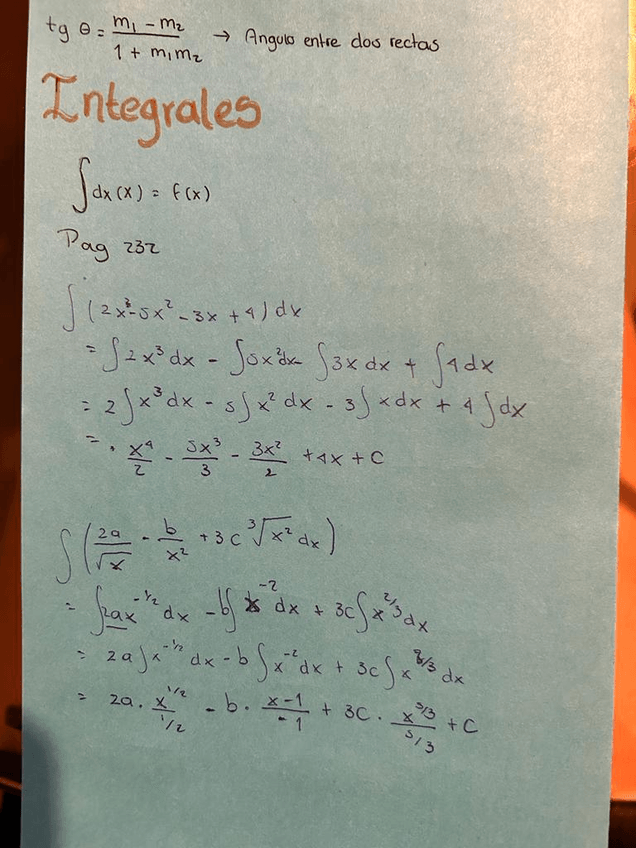 tg θ = m₁ - m₂ / 1 + m₁m₂ → Angulo entre dos rectas
Integrales
∫dx (x) = f(x)
Pag 232
∫(2x³-5x² - 3x + 4) dx
= ∫2x³dx - ∫5x²dx - ∫3x dx + ∫4dx
= 2∫x³dx - 5∫x² dx - 3∫xdx + 4∫dx
= x⁴/2 - 5x³/3 - 3x²/2 + 4x + C
∫(2a/√x - b/x² + 3c ∛x² dx)
= ∫2ax^-1/2 dx - b∫x^-2 dx + 3c∫x^2/3 dx
= 2a∫x^-1/2 dx - b∫x^-2 dx + 3c∫x^2/3 dx
= 2a. x^1/2 / 1/2 - b. x-1 / -1 + 3C. x^5/3 / 5/3 + C